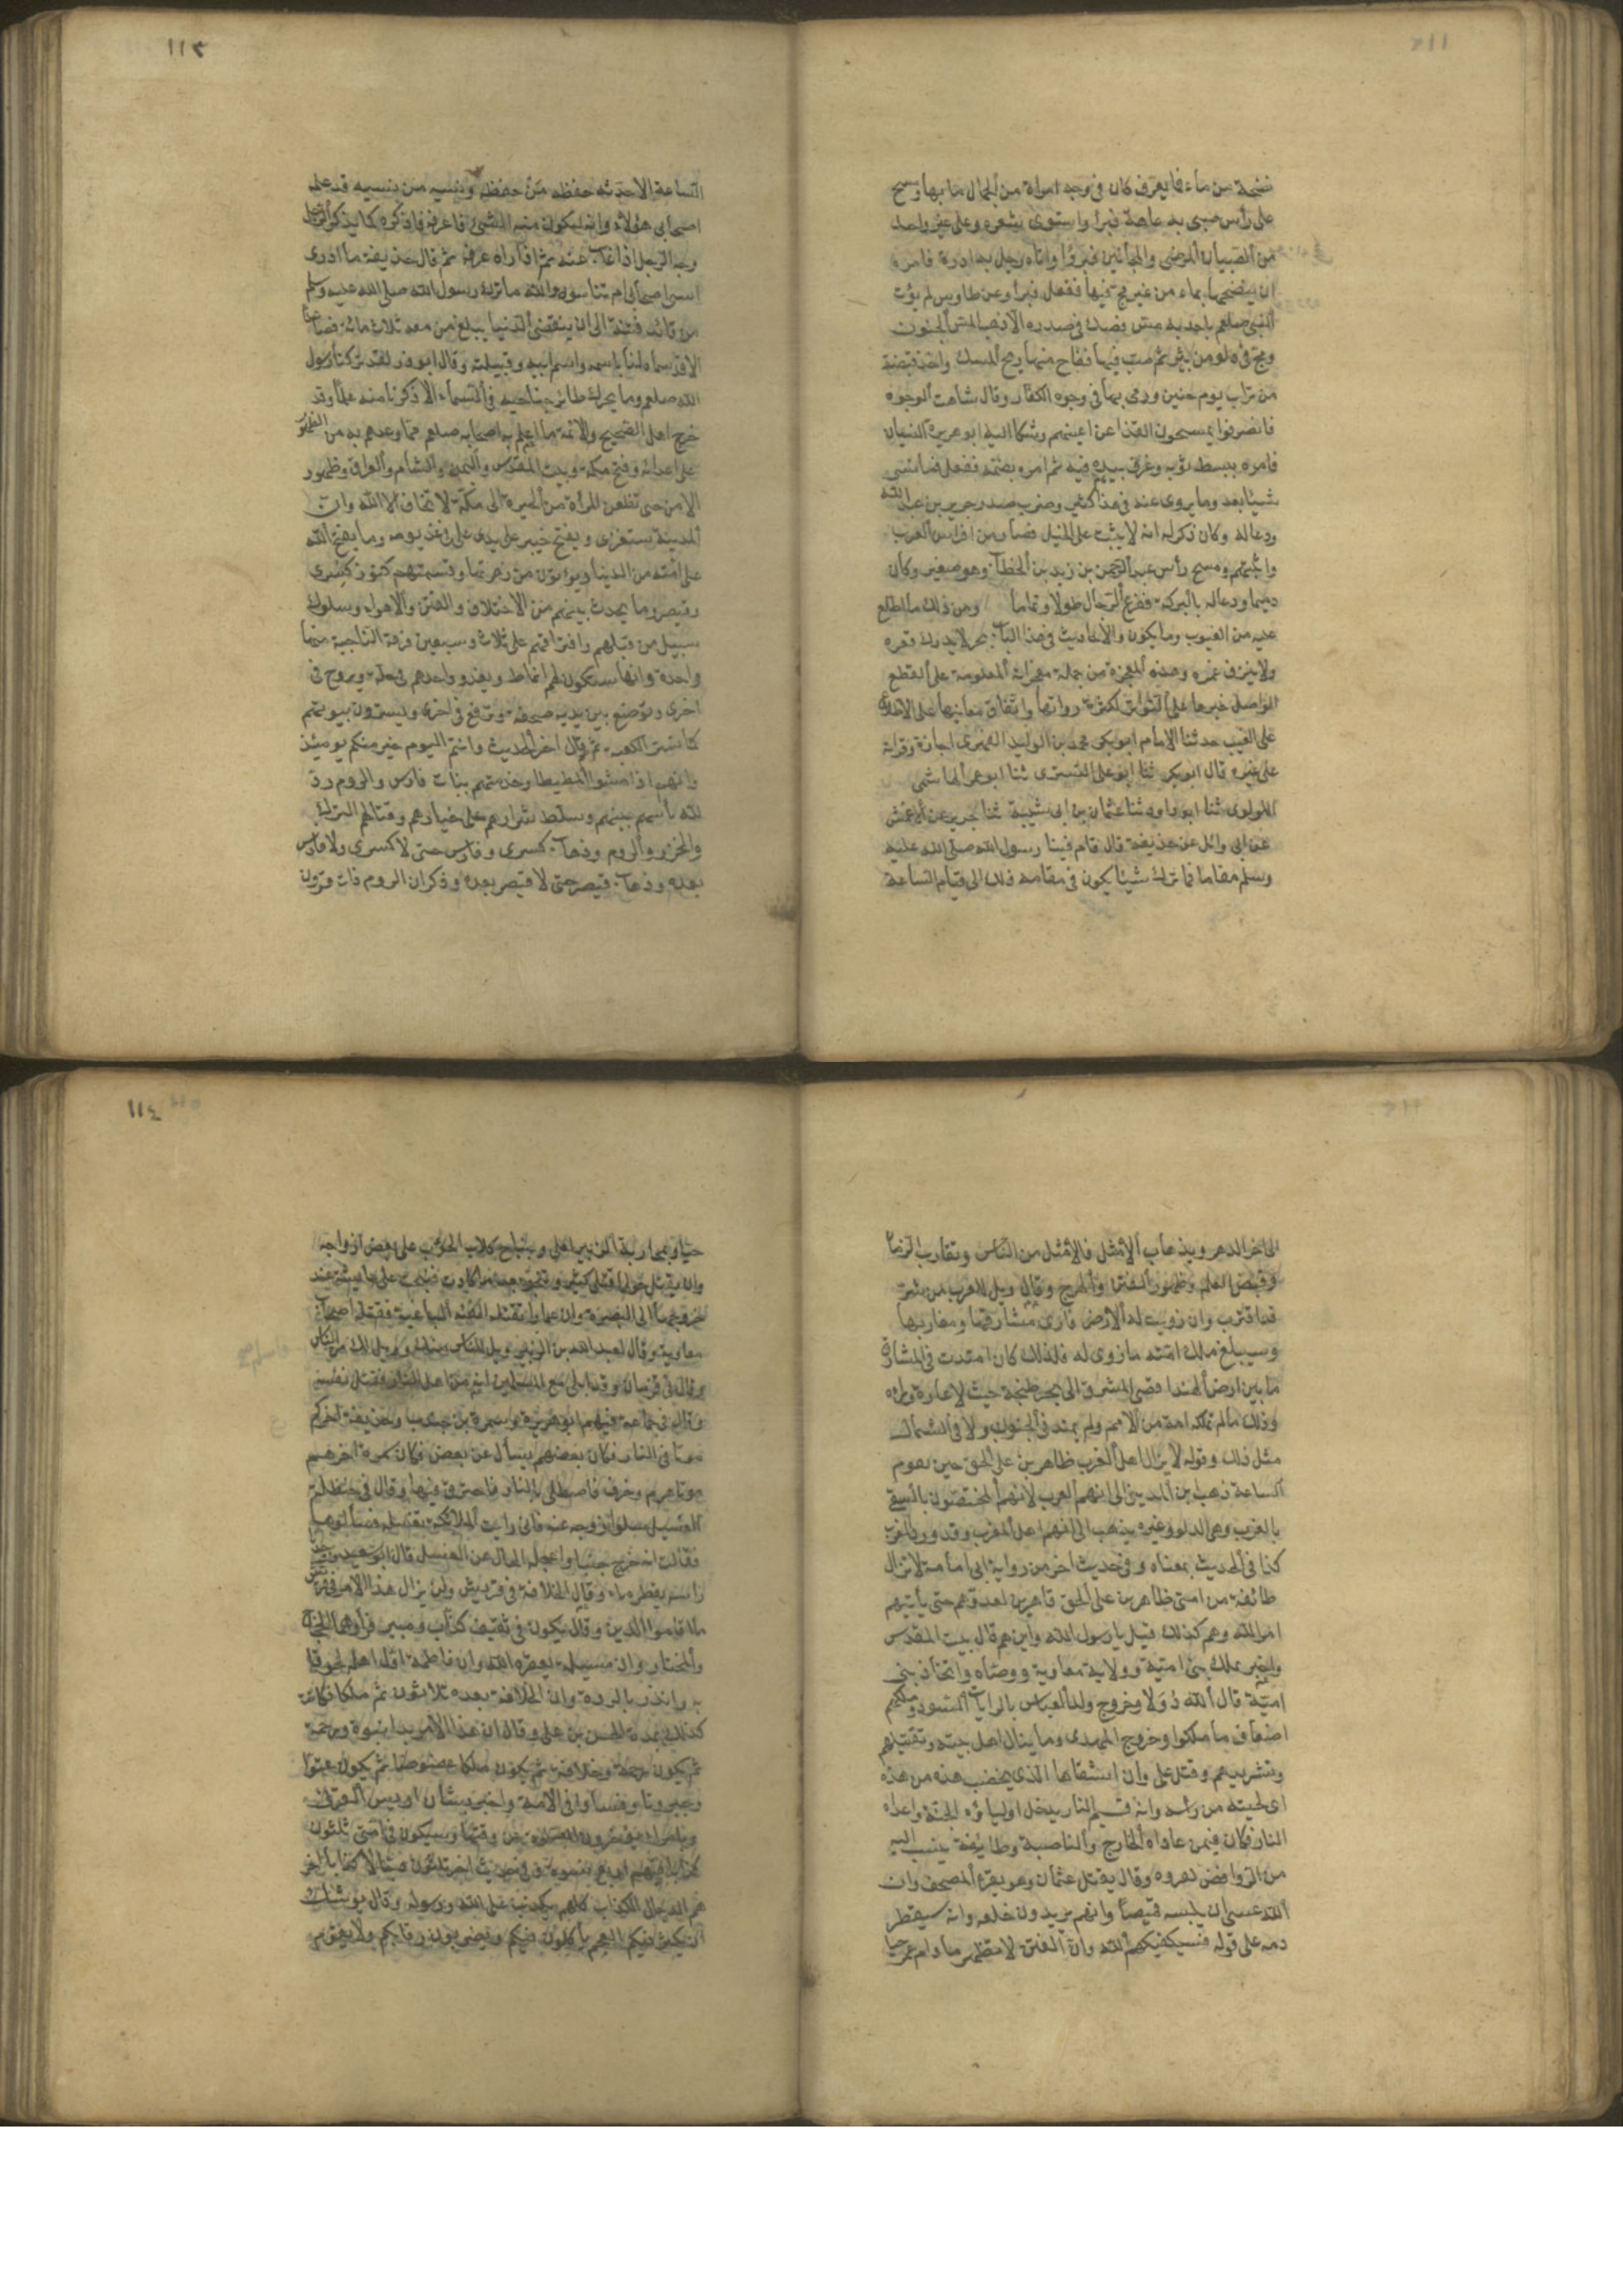 نضحة من ماء فما يعرف كان في وجه امراة من الجمال ما بها ومسح
على رأس صبي به عاهة فبرأ واستوى شعره وعلى غير واحد
من الصبيان المرضى والمجانين فبرؤا واتاه رجل به ادرة فامره
ان ينضحها بماء من عين مج فيها ففعل فبرأ وعن طاوس لم يؤت
النبي صلعم باحد به مس فصك في صدره الا ذهب المس الجنون
ومج في دلو من بئر ثم صب فيها ففاح منها ريح المسك واخذ قبضة
من تراب يوم حنين ورمى بها في وجوه الكفار وقال شاهت الوجوه
فانصرفوا يمسحون القذا عن اعينهم وشكا اليه ابو هريرة النسيان
فامره ببسط ثوبه وغرف بيده فيه ثم امره بضمه ففعل فما نسى
شيئا بعد وما يروى عنه في هذا كثير وضرب صدر جرير بن عبد الله
ودعا له وكان ذكر له انه لا يثبت على الخيل فصار من افرس العرب
واثبتهم ومسح رأس عبد الرحمن بن زيد بن الخطاب وهو صغير وكان
دميما ودعا له بالبركة ففرع الرجال طولا وتماما ومن ذلك ما اطلع
عليه من الغيوب وما يكون والاحاديث في هذا الباب بحر لا يدرك قعره
ولا ينزف غمره وهذه المعجزة من جملة معجزاته المعلومة على القطع
الواصل خبرها على التواتر لكثرة رواتها واتفاق معانيها على الاطلاع
على الغيب حدثنا الامام ابو بكر محمد بن الوليد الفهرى اجازة وقراة
على غيره قال ابو بكر ثنا ابو على التسترى ثنا ابو عمر الهاشمى
اللولوى ثنا ابو داود ثنا عثمان بن ابى شيبة ثنا جرير عن الاعمش
عن ابى وائل عن حذيفة قال قام فينا رسول الله صلى الله عليه
وسلم مقاما فما ترك شيئا يكون في مقامه ذلك الى قيام الساعة
١١٣
الساعة الا حدثه حفظه من حفظه ونسيه من نسيه قد علمه
اصحابى هؤلاء وانه ليكون منه الشئ فاعرفه فاذكره كما يذكر الرجل
وجه الرجل اذا غاب عنه ثم اذا رآه عرفه ثم قال حذيفة ما ادرى
انسى اصحابى ام تناسوه والله ما ترك رسول الله صلى الله عليه وسلم
من قائد فتنة الى ان ينقضى الدنيا يبلغ من معه ثلاث مائة فصاعدا
الا قد سماه لنا باسمه واسم ابيه وقبيلته وقال ابو ذر لقد تركنا رسول
الله صلعم وما يحرك طائر جناحيه في السماء الا ذكرنا منه علما وقد
خرج اهل الصحيح والائمة ما اعلم به اصحابه صلعم مما وعدهم به من الظهور
على اعدائه وفتح مكة وبيت المقدس واليمن والشام والعراق وظهور
الامن حتى تظعن المرأة من الحيرة الى مكة لا تخاف الا الله وان
المدينة ستغزى ويفتح خيبر على يدى على في غد يومه وما يفتح الله
على امته من الدنيا ويؤتون من زهرتها وقسمتهم كنوز كسرى
وقيصر وما يحدث بينهم من الاختلاف والفتن والاهواء وسلوك
سبيل من قبلهم وافتراقهم على ثلاث وسبعين فرقة الناجية منها
واحدة وانها ستكون لهم انماط ويغدو احدهم في حلة ويروح في
اخرى وتوضع بين يديه صحفة وترفع في اخرى ويسترون بيوتهم
كما تستر الكعبة ثم قال اخر الحديث وانتم اليوم خير منكم يومئذ
وانهم اذا مشوا المطيطا وخدمتهم بنات فارس والروم رد
الله بأسهم بينهم وسلط شرارهم على خيارهم وقتالهم الترك
والخزر والروم وذهاب كسرى وفارس حتى لا كسرى ولا فارس
بعده وذهاب قيصر حتى لا قيصر بعده وذكر ان الروم ذات قرون
الى اخر الدهر ويذهاب الامثل فالامثل من الناس وتقارب الزمان
وقبض العلم وظهور الفتن والهرج وقال ويل للعرب من شر
قد اقترب وان زويت له الارض فارى مشارقها ومغاربها
وسيبلغ ملك امته ما زوى له فلذلك كان امتدت في المشارق
ما بين ارض الهند اقصى المشرق الى بحر طنجة حيث لا عمارة وراءه
وذلك ما لم تملكه امة من الامم ولم يمتد في الجنوب ولا في الشمال
مثل ذلك وقوله لا يزال اهل الغرب ظاهرين على الحق حين يقوم
الساعة ذهب ابن المدينى الى انهم العرب لانهم المختصون بالسقى
بالغرب وهى الدلو وغيره يذهب الى انهم اهل المغرب وقد ورد المغرب
كذا في الحديث بمعناه وفي حديث اخر من رواية ابى امامة لا تزال
طائفة من امتى ظاهرين على الحق قاهرين لعدوهم حتى يأتيهم
امر الله وهم كذلك قيل يا رسول الله واين هم قال ببيت المقدس
واخبر بملك بنى امية وولاية معاوية ووصاه واتخاذ بنى
امية قال الله دولا وخروج ولد العباس بالرايات السود وملكهم
اضعاف ما ملكوا وخروج المهدى وما ينال اهل بيته وتقتيلهم
وتشريدهم وقتل على وان اشقاها الذى يخضب هذه من هذه
اى لحيته من رأسه وانه قسيم النار يدخل اولياؤه الجنة واعداه
النار فكان فيمن عاداه الخارج والناصبة وطائفة ينسب اليه
من الروافض كفروه وقال يقتل عثمان وهو يقرء المصحف وان
الله عسى ان يلبسه قميصا وانهم يريدون خلعه وانه سيقطر
دمه على قوله فسيكفيكهم الله وان الفتن لا تظهر ما دام عمر حيا
١١٤
حيا وبمحاربة الزبير لعلى وبنباح كلاب الحوأب على بعض ازواجه
وان يقتل حولها قتلى كثير وتنجو بعد ما كادت فنبحت على عايشة عند
خروجها الى البصرة وان عمارا تقتله الفئة الباغية فقتله اصحاب
معاوية وقال لعبد الله بن الزبير ويل للناس منك وويل لك من الناس
وقال في قزمان وقد ابلى مع المسلمين انه من اهل النار فقتل نفسه
وقال في جماعة فيهم ابو هريرة وسمرة بن جندب وحذيفة اخركم
موتا في النار فكان بعضهم يسأل عن بعض فكان سمرة اخرهم
موتا هرم وخرف فاصطلى بالنار فاحترق فيها وقال في حنظلة
الغسيل سلوا زوجه عنه فانى رايت الملائكة تغسله فسألوها
فقالت انه خرج جنبا واعجله الحال عن الغسل قال ابو سعيد وجدنا
راسه يقطر ماء وقال الخلافة في قريش ولن يزال هذا الامر في قريش
ما اقاموا الدين وقال يكون في ثقيف كذاب ومبير فرأوهما الحجاج
والمختار وان مسيلمة يعقره الله وان فاطمة اول اهله لحوقا
به وانذر بالردة وان الخلافة بعده ثلاثون ثم ملكا فكانت
كذلك بمدة الحسن بن على وقال ان هذا الامر بدا نبوة ورحمة
ثم يكون رحمة وخلافة ثم يكون ملكا عضوضا ثم يكون عتوا
وجبروتا وفسادا في الامة واخبر بشان اويس القرنى
وبامراء يؤخرون الصلوة عن وقتها وسيكون في امتى ثلثون
كذابا فيهم اربع نسوة وفي حديث اخر ثلثون دجالا كذابا اخر
هم الدجال الكذاب كلهم يكذب على الله ورسوله وقال يوشك
ان يكثر فيكم العجم يأكلون فيكم ويضربون رقابكم ولا يقوم